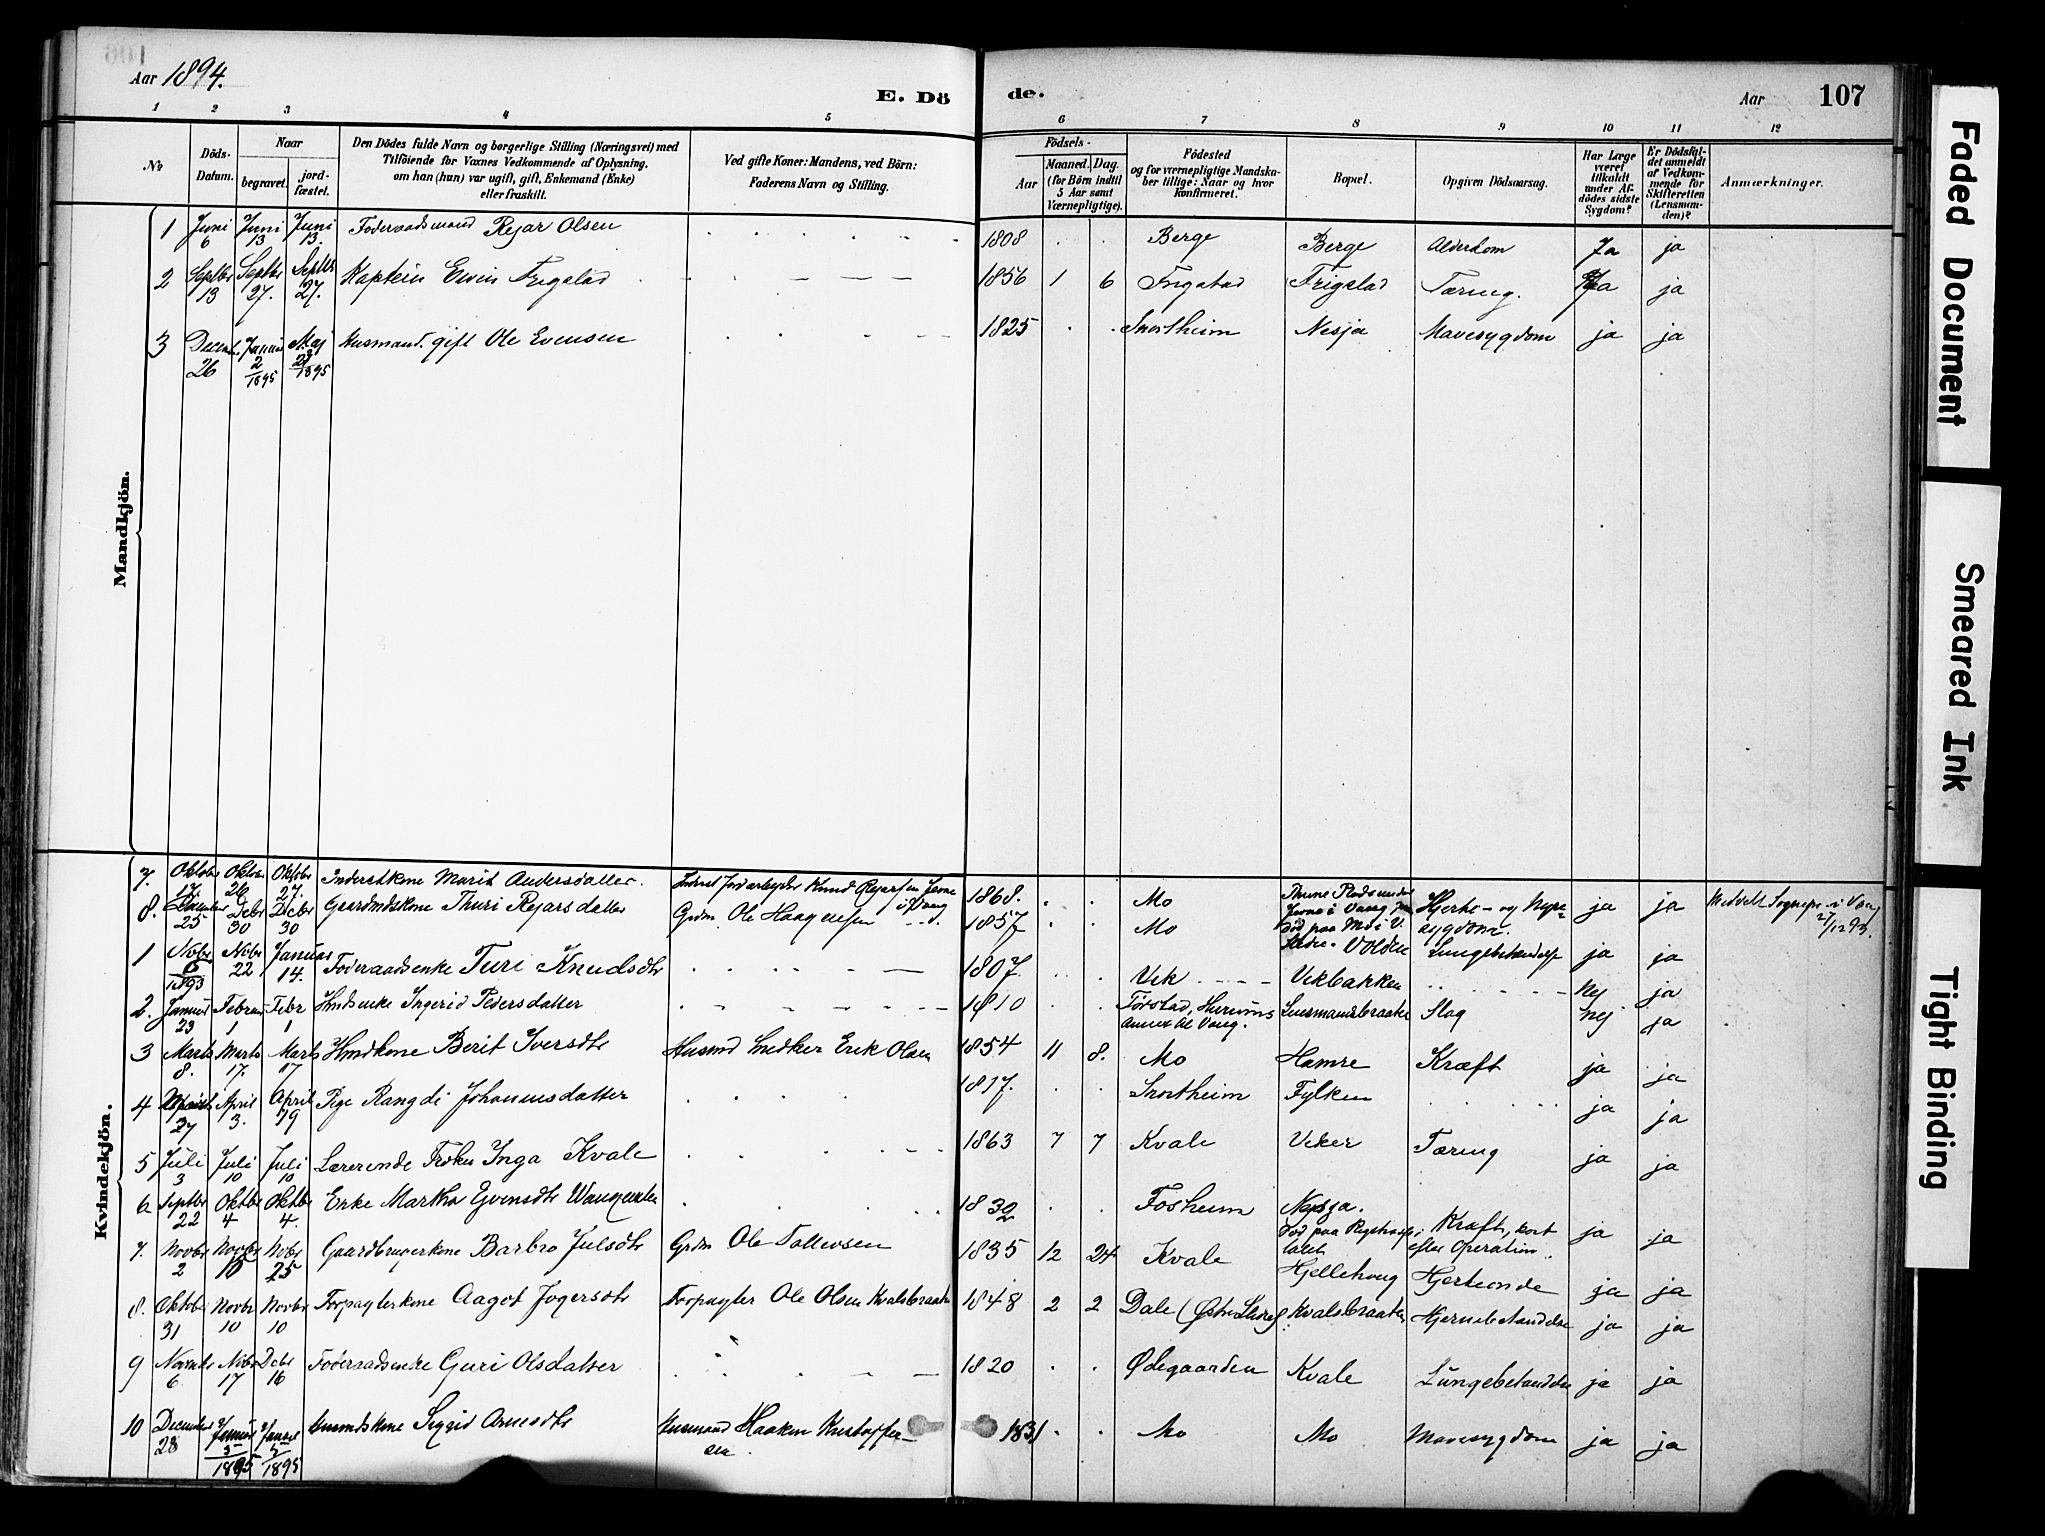 106
Aar 1894.
E. Dö de.
Aar 107
1 2 3 4 5 6 7 8 9 10 11 12
No
Döds-Datum.
Naar
begravet.
jord-fæstet.
Den Dödes fulde Navn og borgerlige Stilling (Næringsvei) med
Tilföiende for Voxnes Vedkommende af Oplysning,
om han (hun) var ugift, gift, Enkemand (Enke)
eller fraskilt.
Ved gifte Koner: Mandens, ved Börn:
Faderens Navn og Stilling.
Födsels-
Aar
Maaned. Dag.
(for Börn indtil
5 Aar samt
Værnepligtige).
Födested
og for værnepligtige Mandska-
ber tillige: Naar og hvor
konfirmeret.
Bopæl.
Opgiven Dödsaarsag.
Har Læge
været
tilkaldt
under Af-
dödes sidste
Sygdom?
Er Dödsfal-
det anmeldt
af Vedkom-
mende for
Skifteretten
(Lensman-
den)?
Anmærkninger.
Mandkjön.
1 Juni 6 Juni 13 Juni 13. Föderaadsmand Rejar Olsen 1808 Berge Berge Alderdom Ja ja
2 Septbr 13 Septbr 27. Septbr 27. Kaptein Frigstad 1856 1 6 Frigstad Frigstad Tæring. Ja ja
3 Decem 26 Januar 2/1895 Maj 1895 Husmand. gift Ole Evensen 1825 Snortheim Nesja Mavesygdom ja ja
Kvindekjön.
7. Oktober 17. Oktbr 26 Oktobr 27. Inderstkone Marit Andersdatter. Inderst Jordarbejder Knud 1868. Mo Thune Plads under Jerne i Vang ja ja Meldt Sognepr. i Vang 27/12 93.
8. December 25 Debr 30 Decbr 30 Gaardmdskone Thuri Rejarsdatter Grdm Ole Haagensen 1857 Mo Volden
1 Novbr 6 1893 Novbr 22 Januar 14. Föderaadsenke Turi Knudsdtr 1807. Vik Vikbakken Nej ja
2. Januar 23 Februar 1 Febr 1 Hmdsenke Ingerid Pedersdatter 1810 Törstad, Hurums Annex til Vang. Lensmandsbraaten Slag nej ja
3 Marts 8. Marts 17. Marts 17 Hmdkone Berit Iversdtr Husmd Snedker Erik Olsen 1854 11 8. Mo Hamre Kræft ja ja
4 Marts 27 April 3. April 19 Pige Rangdi Johannesdatter 1817. Snortheim Fylken ja ja
5 Juli 3 Juli 10 Juli 10 Lærerinde Fröken Inga Kvale 1863 7 7 Kvale Veker Tæring ja ja
6 Septbr 22 Oktbr 4 Oktbr 4. Enke Martha 1832 Fosheim Nesja. ja ja
7. Novbr 2 Novbr 10 Nobr 25 Gaardbrugerkone Barbro Julsdtr Grdm Ole Tollevsen 1835 12 24 Kvale Död paa Rigshospitalet. Hjellehoug Kræft, kort efter Operation. Hjerteonde ja ja
8. Oktobr 31 Novbr 10 Novbr 10 Forpagterkone Aagot Jögersdtr Forpagter Ole Olsen Kvalsbraaten 1848 2 2 Dale (Östre Slidre) Kvalsbraaten Hjernebetændelse ja ja
9 Novembr 6 Nobr 17 Debr 16 Föderaadsenke Guri Olsdatter 1820 Ødegaarden Kvale Lungebetændelse ja ja
10 December 28 Januar 5/1895 Januar 5/1895 Husmdskone Sigrid Arnesdtr Husmand Haaken Kristoffersen 1831 Mo Mo Mavesygdom ja ja
Faded Document
Smeared Ink
Tight Binding